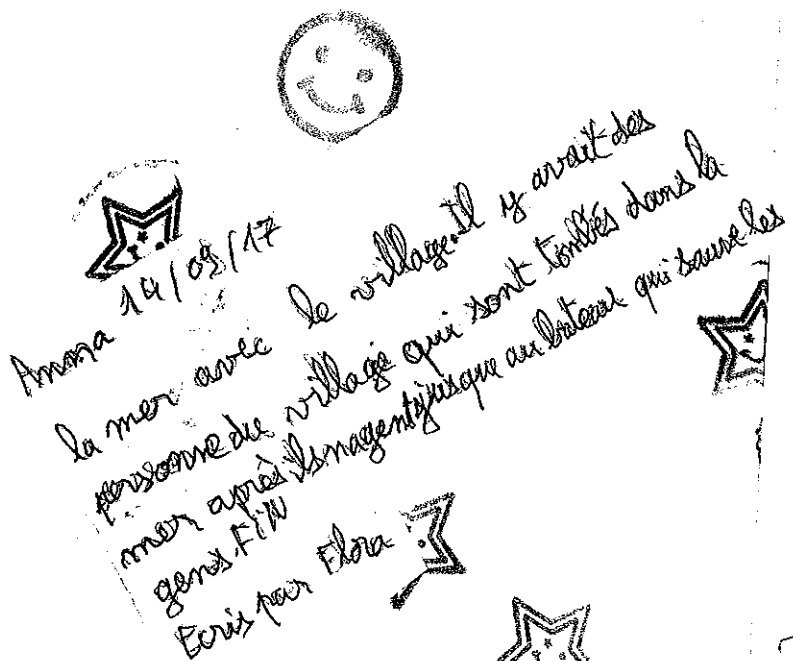 Anna 14/09/17
la mer avec le village.Il y avait des
personne du village qui sont tombés dans la
mer après ils nagent jusque au bateau qui sauve les
gens.FIN
Ecris par Flora